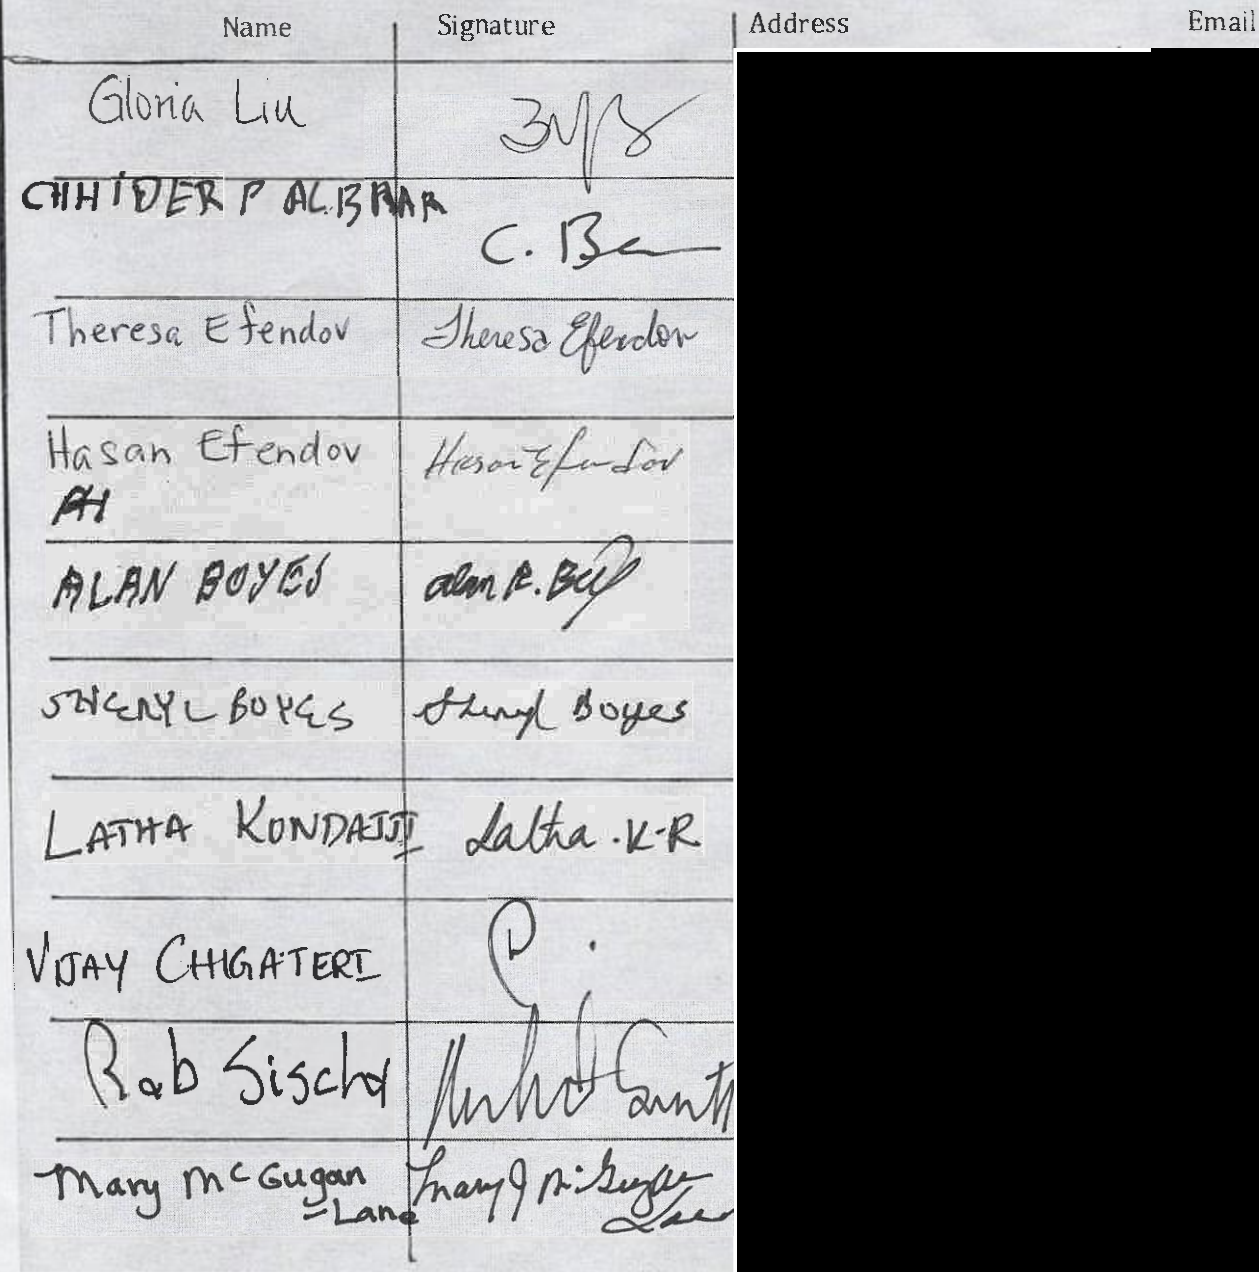 Name Signature Address Email
Gloria Liu
CHHIDER P ALBRAR
C. B
Theresa Efendov Theresa Efendov
Hasan Efendov Hasan Efendov
AH
ALAN BOYES Alan R.
SHERYL BOYES Sheryl Boyes
LATHA KONDAJJI Latha . K-R
VIJAY CHIGATERI
Rob
Mary McGugan Mary J McGugan
-Lane Lane